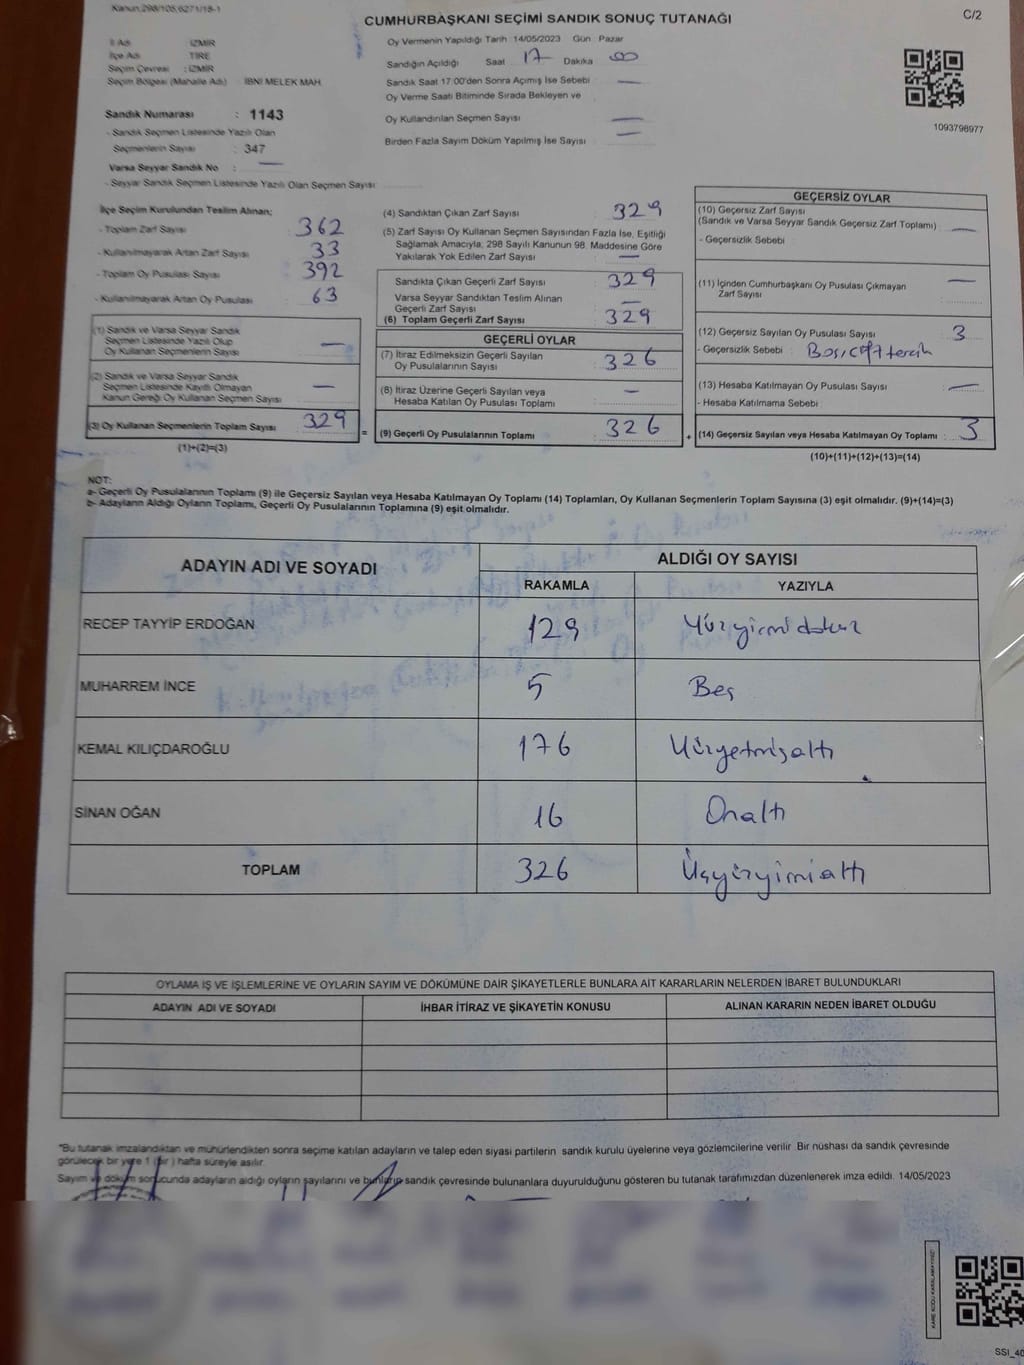 Kanun,298/105,6271/18-1
C/2
CUMHURBAŞKANI SEÇİMİ SANDIK SONUÇ TUTANAĞI
İl Adı İZMİR
İlçe Adı TİRE
Seçim Çevresi : İZMİR
Seçim Bölgesi (Mahalle Adı) İBNİ MELEK MAH.
Oy Vermenin Yapıldığı Tarih 14/05/2023 Gün Pazar
Sandığın Açıldığı Saat 17 Dakika 00
Sandık Saat 17:00'den Sonra Açımış İse Sebebi —
Oy Verme Saati Bitiminde Sırada Bekleyen ve
Oy Kullandırılan Seçmen Sayısı —
Birden Fazla Sayım Döküm Yapılmış İse Sayısı —
1093798977
Sandık Numarası : 1143
- Sandık Seçmen Listesinde Yazılı Olan
Seçmenlerin Sayısı : 347
Varsa Seyyar Sandık No : —
- Seyyar Sandık Seçmen Listesinde Yazılı Olan Seçmen Sayısı
İlçe Seçim Kurulundan Teslim Alınan;
- Toplam Zarf Sayısı : 362
- Kullanılmayarak Artan Zarf Sayısı : 33
- Toplam Oy Pusulası Sayısı : 392
- Kullanılmayarak Artan Oy Pusulası : 63
(1) Sandık ve Varsa Seyyar Sandık
Seçmen Listesinde Yazılı Olup
Oy Kullanan Seçmenlerin Sayısı : —
(2) Sandık ve Varsa Seyyar Sandık
Seçmen Listesinde Kayıtlı Olmayan
Kanun Gereği Oy Kullanan Seçmen Sayısı : —
(3) Oy Kullanan Seçmenlerin Toplam Sayısı : 329 =
(1)+(2)=(3)
(4) Sandıktan Çıkan Zarf Sayısı : 329
(5) Zarf Sayısı Oy Kullanan Seçmen Sayısından Fazla İse, Eşitliği
Sağlamak Amacıyla, 298 Sayılı Kanunun 98. Maddesine Göre
Yakılarak Yok Edilen Zarf Sayısı : —
Sandıkta Çıkan Geçerli Zarf Sayısı : 329
Varsa Seyyar Sandıktan Teslim Alınan
Geçerli Zarf Sayısı : —
(6) Toplam Geçerli Zarf Sayısı : 329
GEÇERLİ OYLAR
(7) İtiraz Edilmeksizin Geçerli Sayılan
Oy Pusulalarının Sayısı : 326
(8) İtiraz Üzerine Geçerli Sayılan veya
Hesaba Katılan Oy Pusulası Toplamı : —
(9) Geçerli Oy Pusulalarının Toplamı : 326 +
GEÇERSİZ OYLAR
(10) Geçersiz Zarf Sayısı
(Sandık ve Varsa Seyyar Sandık Geçersiz Zarf Toplamı) : —
- Geçersizlik Sebebi :
(11) İçinden Cumhurbaşkanı Oy Pusulası Çıkmayan
Zarf Sayısı : —
(12) Geçersiz Sayılan Oy Pusulası Sayısı : 3
- Geçersizlik Sebebi : Boş, çift tercih
(13) Hesaba Katılmayan Oy Pusulası Sayısı : —
- Hesaba Katılmama Sebebi :
(14) Geçersiz Sayılan veya Hesaba Katılmayan Oy Toplamı : 3
(10)+(11)+(12)+(13)=(14)
NOT:
a- Geçerli Oy Pusulalarının Toplamı (9) ile Geçersiz Sayılan veya Hesaba Katılmayan Oy Toplamı (14) Toplamları, Oy Kullanan Seçmenlerin Toplam Sayısına (3) eşit olmalıdır. (9)+(14)=(3)
b- Adayların Aldığı Oyların Toplamı, Geçerli Oy Pusulalarının Toplamına (9) eşit olmalıdır.
ADAYIN ADI VE SOYADI ALDIĞI OY SAYISI
RAKAMLA YAZIYLA
RECEP TAYYİP ERDOĞAN 129 Yüzyirmidokuz
MUHARREM İNCE 5 Beş
KEMAL KILIÇDAROĞLU 176 Yüzyetmişaltı
SİNAN OĞAN 16 Onaltı
TOPLAM 326 Üçyüzyirmialtı
OYLAMA İŞ VE İŞLEMLERİNE VE OYLARIN SAYIM VE DÖKÜMÜNE DAİR ŞİKAYETLERLE BUNLARA AİT KARARLARIN NELERDEN İBARET BULUNDUKLARI
ADAYIN ADI VE SOYADI İHBAR İTİRAZ VE ŞİKAYETİN KONUSU ALINAN KARARIN NEDEN İBARET OLDUĞU
"Bu tutanak imzalandıktan ve mühürlendikten sonra seçime katılan adayların ve talep eden siyasi partilerin sandık kurulu üyelerine veya gözlemcilerine verilir. Bir nüshası da sandık çevresinde
görülecek bir yere 1 (bir) hafta süreyle asılır.
Sayım ve döküm sonucunda adayların aldığı oyların sayılarını ve bunların sandık çevresinde bulunanlara duyurulduğunu gösteren bu tutanak tarafımızdan düzenlenerek imza edildi. 14/05/2023
KARE KODU KARALAMAYINIZ!
SSI_40